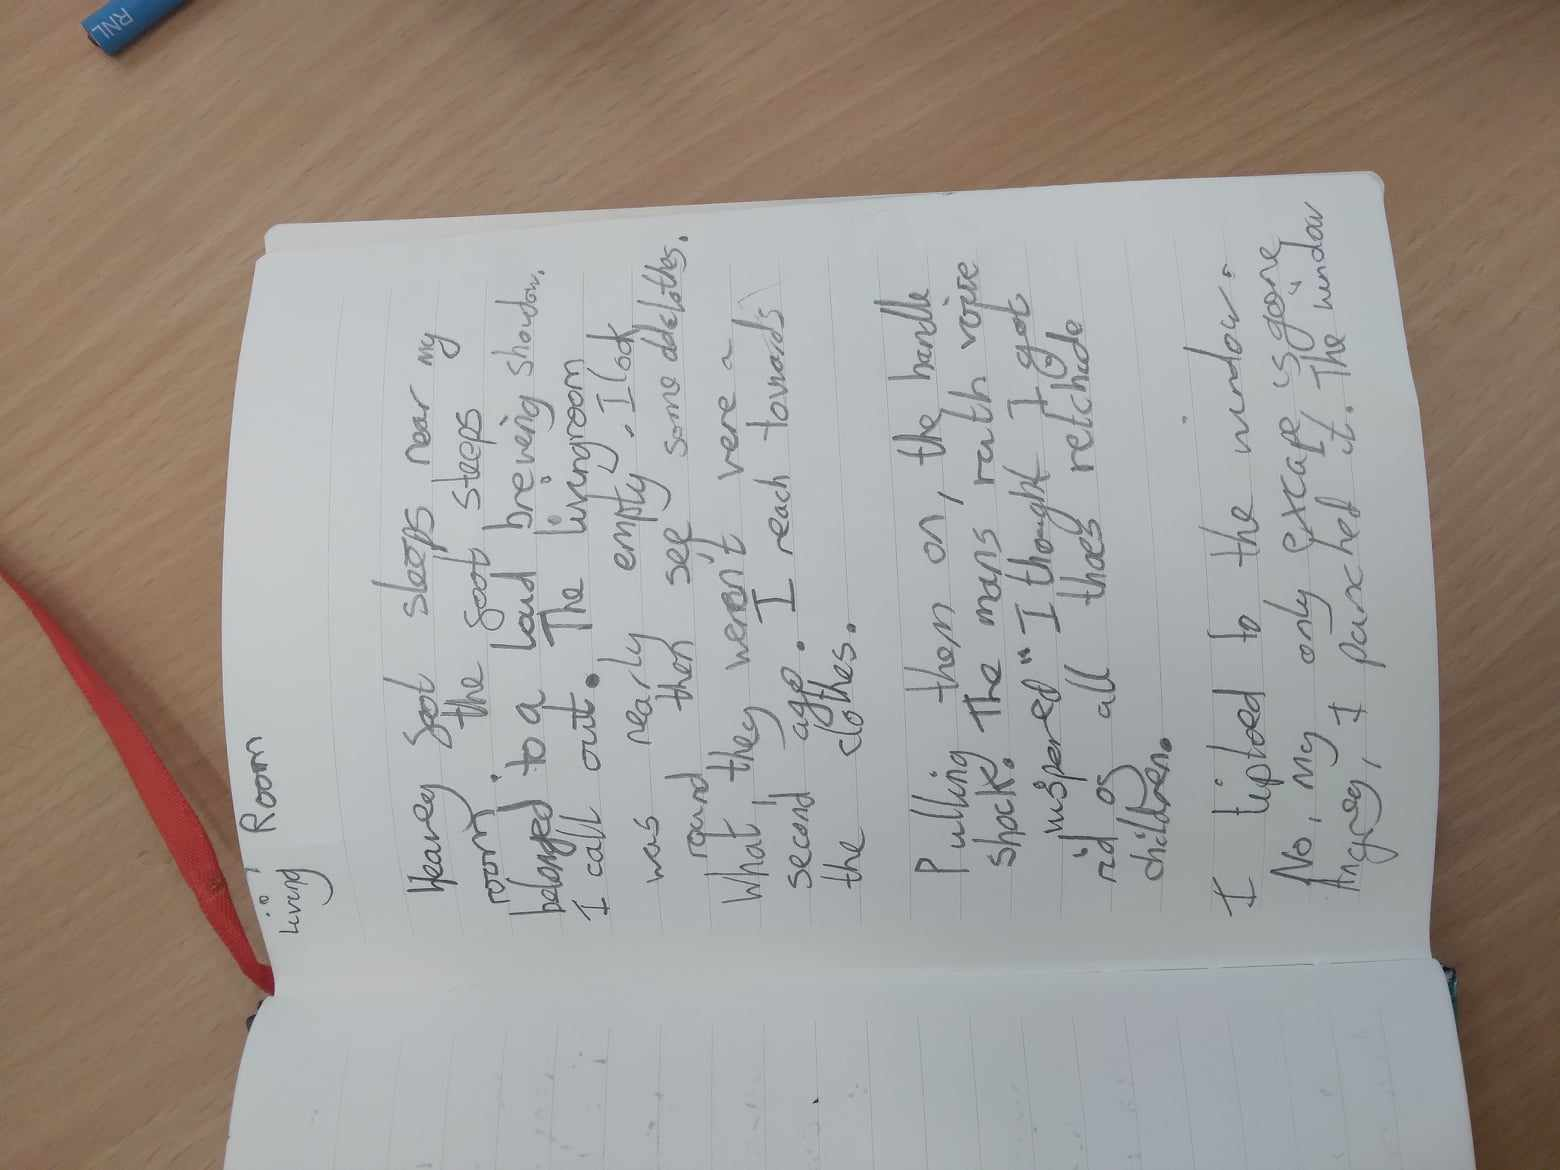 Living Room
Heavey foot steeps near my
room, the foot steeps
belonged to a loud brewing shadow.
I call out. The livingroom
was nearly empty. I look
round then see some clothes.
What they weren't were a
second ago. I reach towards
the clothes.
Pulling them on, the handle
shock. The mans rath voice
wispered "I thought I got
rid of all thoes retchade
children.
I tiptoed to the window.
No, my only excape is gone
Angrey, I punched it. The window
RNL